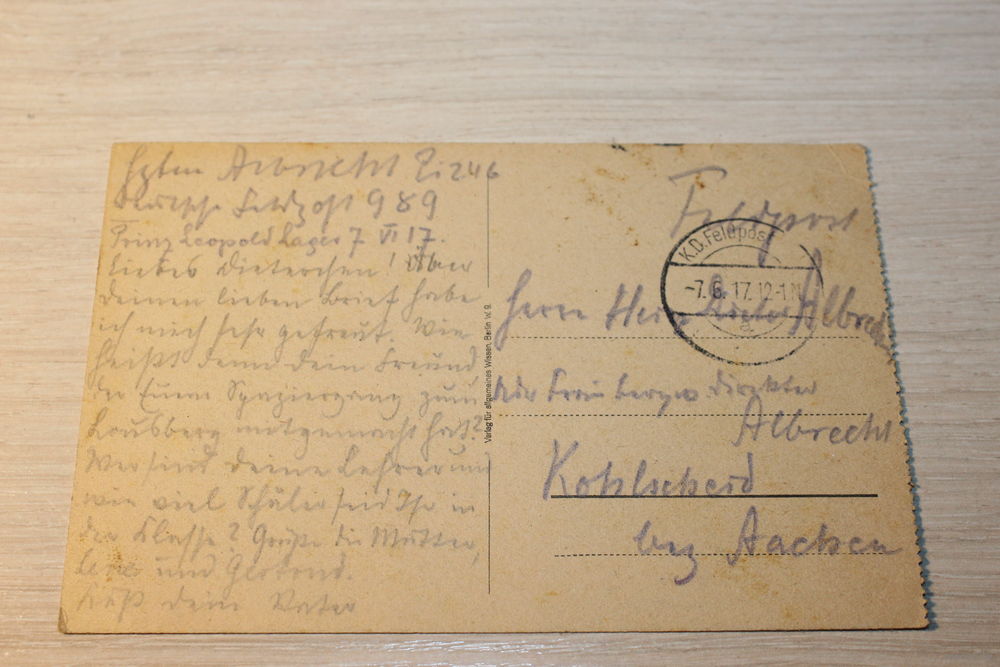 Hptm Albrecht
Deutsche Feldpost 989
Prinz Leopold Lager 7 VI 17.
Liebes Dieterchen! Über
deinen lieben Brief habe
ich mich sehr gefreut. Wie
heißt denn dein Freund
der Euern Spaziergang zum
Lousberg mitgemacht hat?
Wer sind deine Lehrer und
wie viel Schüler seid Ihr in
der Klasse? Grüße die Mutter,
und Gertrud.
dein Vater
Verlag für allgemeines Wissen, Berlin W. 9.
Feldpost
K.D. Feldpost
-7.6.17.12-1
Herrn Albrecht
Frau Direktor
Albrecht
Kohlscheid
bei Aachen